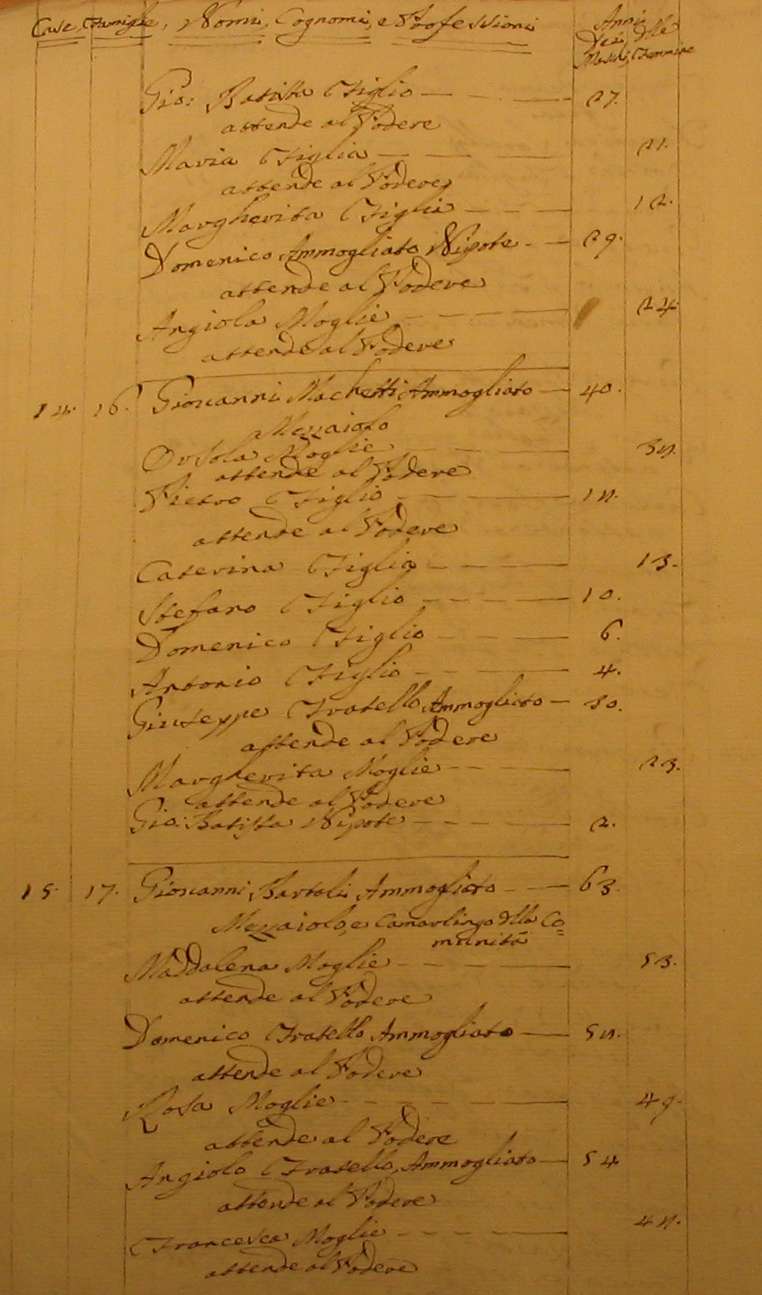 Case, Famiglie, Nomi, Cognomi, e Professioni Anni
Dei delle
Maschi, Femmine
Gio: Batista Figlio 27.
attende al Podere
Maria Figlia
attende al Podere
Margherita Figlia 12.
Domenico Ammogliato Nipote 29.
attende al Podere
Angiola Moglie 24.
attende al Podere
14. 16. Giovanni Machetti Ammogliato 40.
Mezzaiolo
Orsola Moglie
attende al Podere
Pietro Figlio
attende al Podere
Caterina Figlia 13.
Stefano Figlio 10.
Domenico Figlio 6.
Antonio Figlio 4.
Giuseppe Fratello Ammogliato 30.
attende al Podere
Margherita Moglie 23.
attende al Podere
Gio: Batista Nipote 2.
15. 17. Giovanni Bartoli Ammogliato 63.
Mezzaiolo, e Camarlingo della Co=
munità
Maddalena Moglie 53.
attende al Podere
Domenico Fratello Ammogliato
attende al Podere
Rosa Moglie 49.
attende al Podere
Angiolo Fratello Ammogliato 54
attende al Podere
Francesca Moglie
attende al Podere